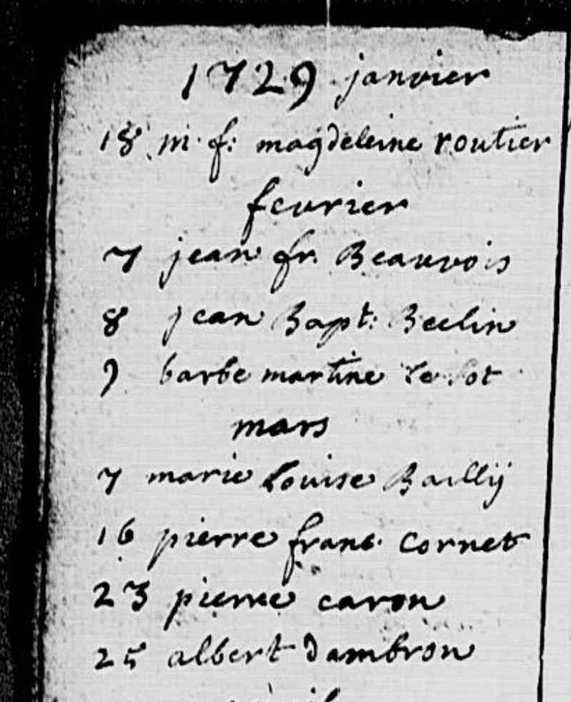 1729 janvier
18 m. f: magdeleine routier
fevrier
7 jean fr. Beauvois
8 jean Bapt: Beelin
9 barbe martine le
mars
7 marie louise Baillÿ
16 pierre frans. cornet
23 pierre caron
25 albert dambron